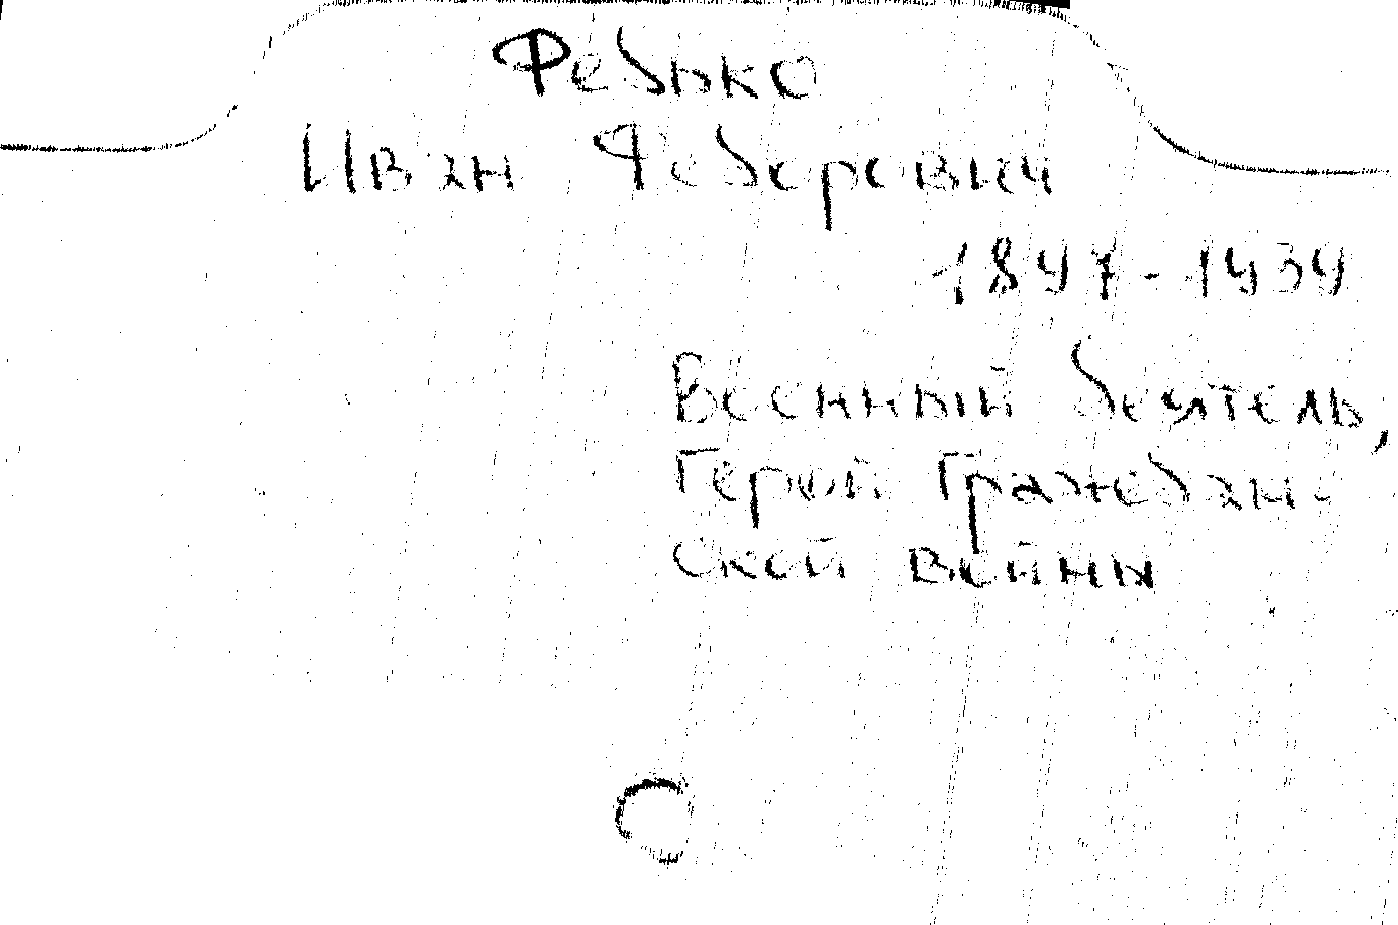 Федько
Иван Федорович
1897-1939
Военный деятель,
Герой Граждан-
ской войны